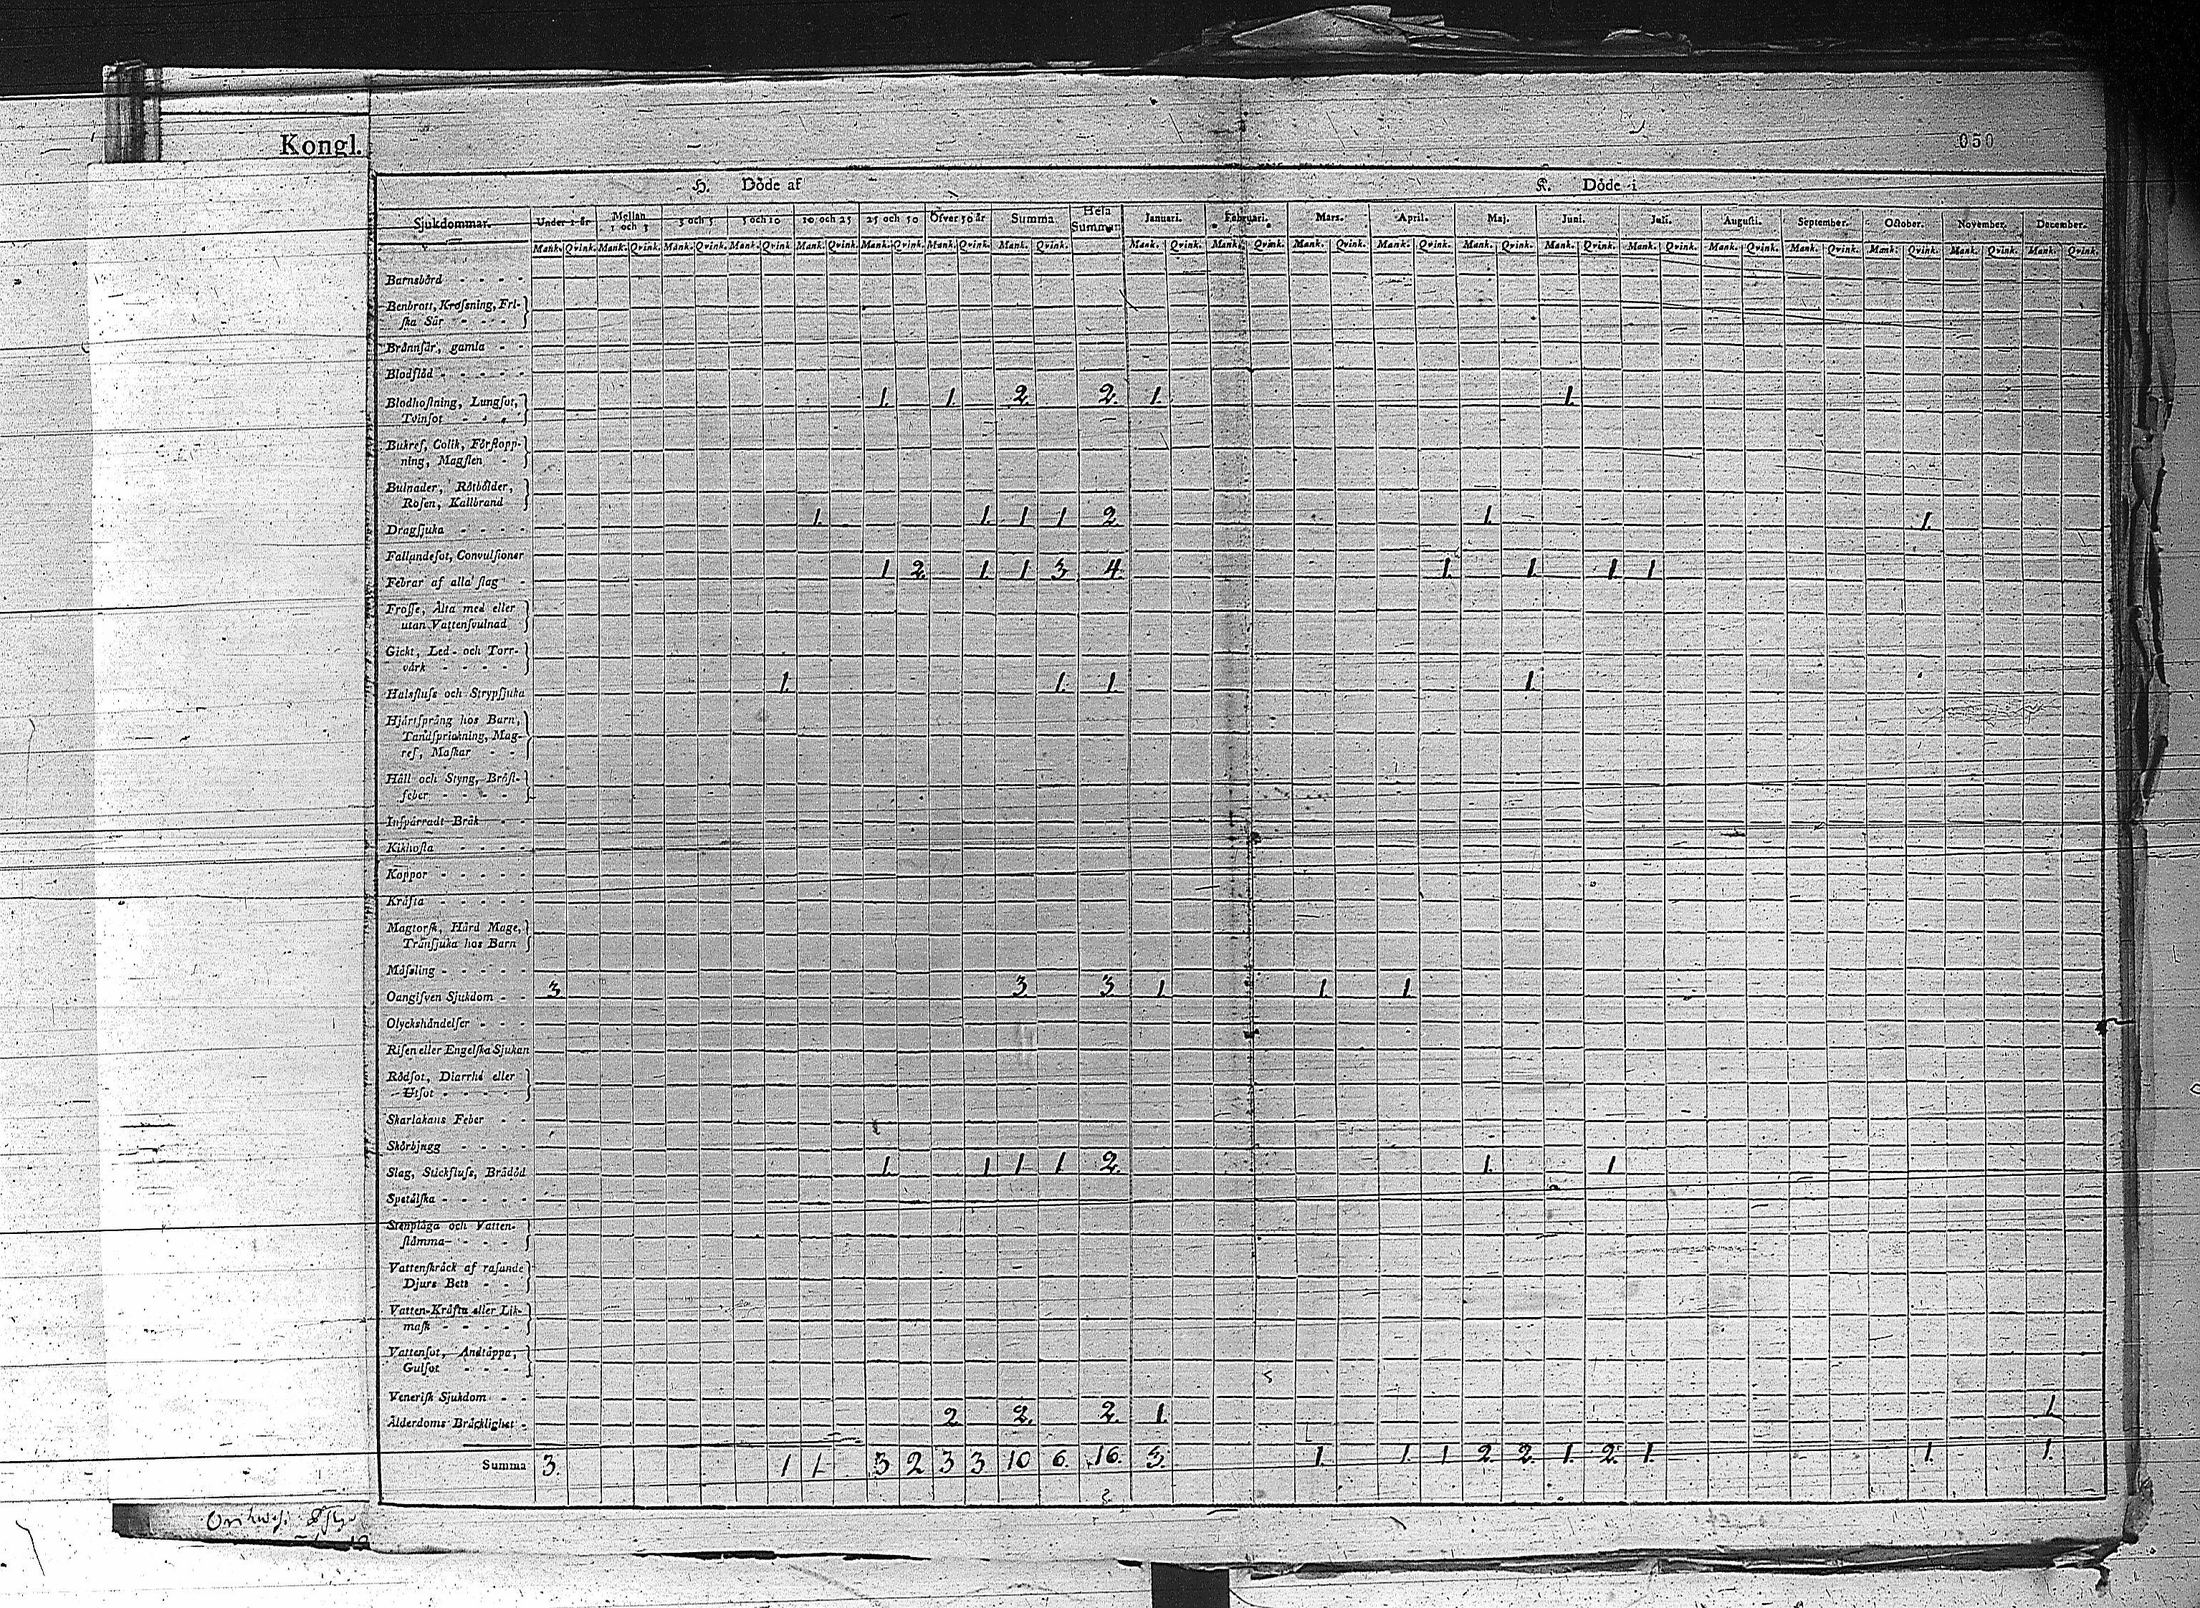 Kongl.
050
H. Dŏde af
K. Dŏde i
Sjukdommar. Under 1 år Mellan 1 och 3 3 och 5 5 och 10 10 och 25 25 och 50 Öfver 50 år Summa Hela Summan Januari. Februari. Mars. April. Maj. Juni. Juli. Augusti. September. October. November. December.
Mank. Qvink. Mank. Qvink. Mank. Qvink. Mank. Qvink. Mank. Qvink. Mank. Qvink. Mank. Qvink. Mank. Qvink. Mank. Qvink. Mank. Qvink. Mank. Qvink. Mank. Qvink. Mank. Qvink. Mank. Qvink. Mank. Qvink. Mank. Qvink. Mank. Qvink. Mank. Qvink. Mank. Qvink. Mank. Qvink.
Barnsbörd - - -
Benbrott, Krossning, Fri-
ska Sår - - - -
Brännsår, gamla - -
Blodflöd - - - - -
Blodhostning, Lungsot, 1. 1 2. 2. 1. 1.
Tvinsot - - -
Bukref, Colik, Förstopp-
ning, Magsten -
Bulnader, Rötbölder,
Rosen, Kallbrand
Dragsjuka - - - - 1. 1. 1 1 2 1. 1.
Fallandesot, Convulsioner
Febrar af alla slag - 1 2. 1. 1 3 4. 1. 1. 1. 1
Frossa, Älta med eller
utan Vattensvulnad
Gickt, Led- och Torr-
värk - - - -
Halsfluss och Strypsjuka 1. 1. 1 1.
Hjertsprång hos Barn,
Tandsprickning, Mag-
ref, Maskar - -
Håll och Styng, Bröst-
feber - - - - -
Inspärradt Bråk - -
Kikhosta - - - -
Koppor - - - - -
Kräfta - - - - -
Magtorsk, Hård Mage,
Tränsjuka hos Barn
Mässling - - - - -
Oangifven Sjukdom - - 3. 3. 3 1. 1. 1.
Olyckshändelser - - -
Risen eller Engelska Sjukan
Rödsot, Diarrhé eller
Utsot - - - -
Skarlakans Feber - -
Skörbjugg - - - -
Slag, Stickfluss, Brådöd 1. 1 1 1 2. 1. 1
Spetälska - - - - -
Stenplåga och Vatten-
stämma - - - -
Vattenskräck af rasande
Djurs Bett - -
Vatten-Kräfta eller Lik-
mask - - - -
Vattensot, Andtäppa,
Gulsot - - -
Venerisk Sjukdom - -
Ålderdoms Bräcklighet - 2 2. 2. 1. 1.
Summa 3. 1 1. 3 2 3 3 10 6. 16. 3. 1. 1. 1 2 2. 1. 2. 1. 1. 1.